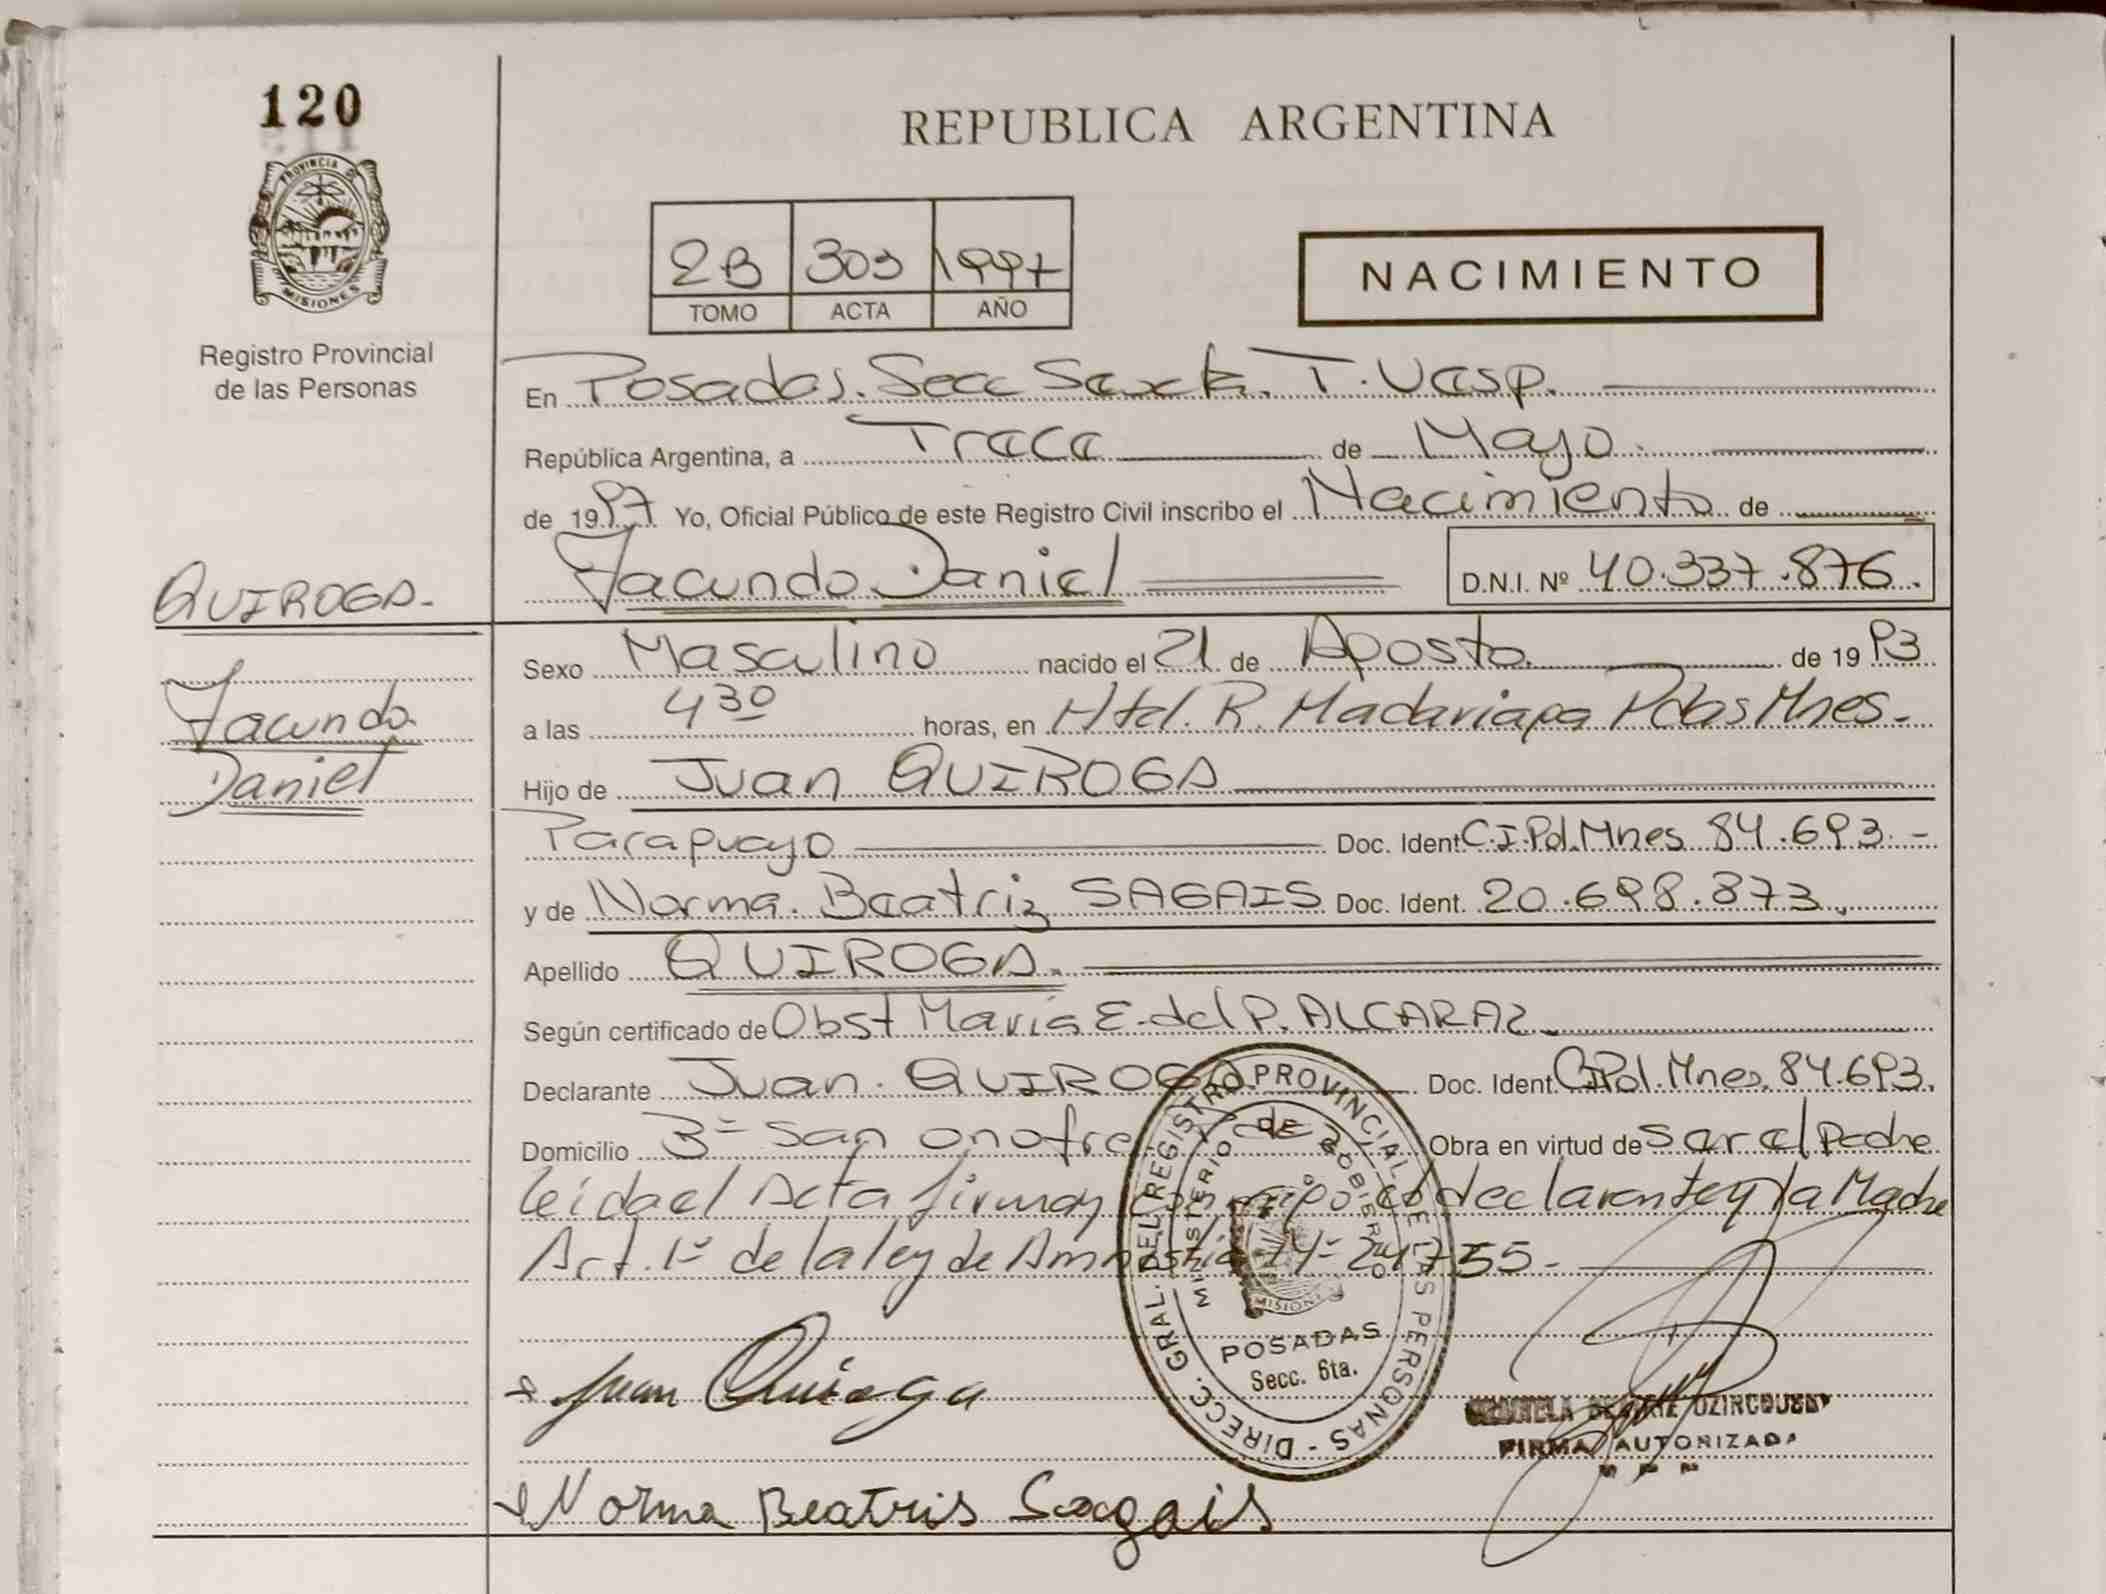 120
REPUBLICA ARGENTINA
PROVINCIA DE
MISIONES
Registro Provincial
de las Personas
2B 303 1997
TOMO ACTA AÑO
NACIMIENTO
En Posadas. Secc Sexta. T. Vesp.
República Argentina, a Trece de Mayo.
de 1997. Yo, Oficial Público de este Registro Civil inscribo el Nacimiento de
Facundo Daniel D.N.I. Nº 40.337.876.
QUIROGA.
Facundo
Daniel
Sexo Masculino nacido el 21 de Agosto de 1993
a las 4 30 horas, en Htal. R. Madariaga Pdas Mnes.
Hijo de Juan QUIROGA
Paraguayo Doc. Ident. C.I.Pol.Mnes 84.693.-
y de Norma. Beatriz SAGAIS Doc. Ident. 20.698.873.
Apellido QUIROGA.
Según certificado de Obst María E. del P. ALCARAZ
Declarante Juan. QUIROGA Doc. Ident. CI Pol. Mnes. 84.693.
Domicilio Bº San onofre Obra en virtud de ser el Padre
leida el Acta firman conmigo el declarante y la Madre
Art. 1º de la ley de Amnestia Nº 24755.-
Juan Quiroga
DIRECC. GRAL. DEL REGISTRO PROVINCIAL DE LAS PERSONAS -
MINISTERIO DE GOBIERNO
MISIONES
POSADAS
Secc. 6ta.
FIRMA AUTORIZADA
Norma Beatris Sagais